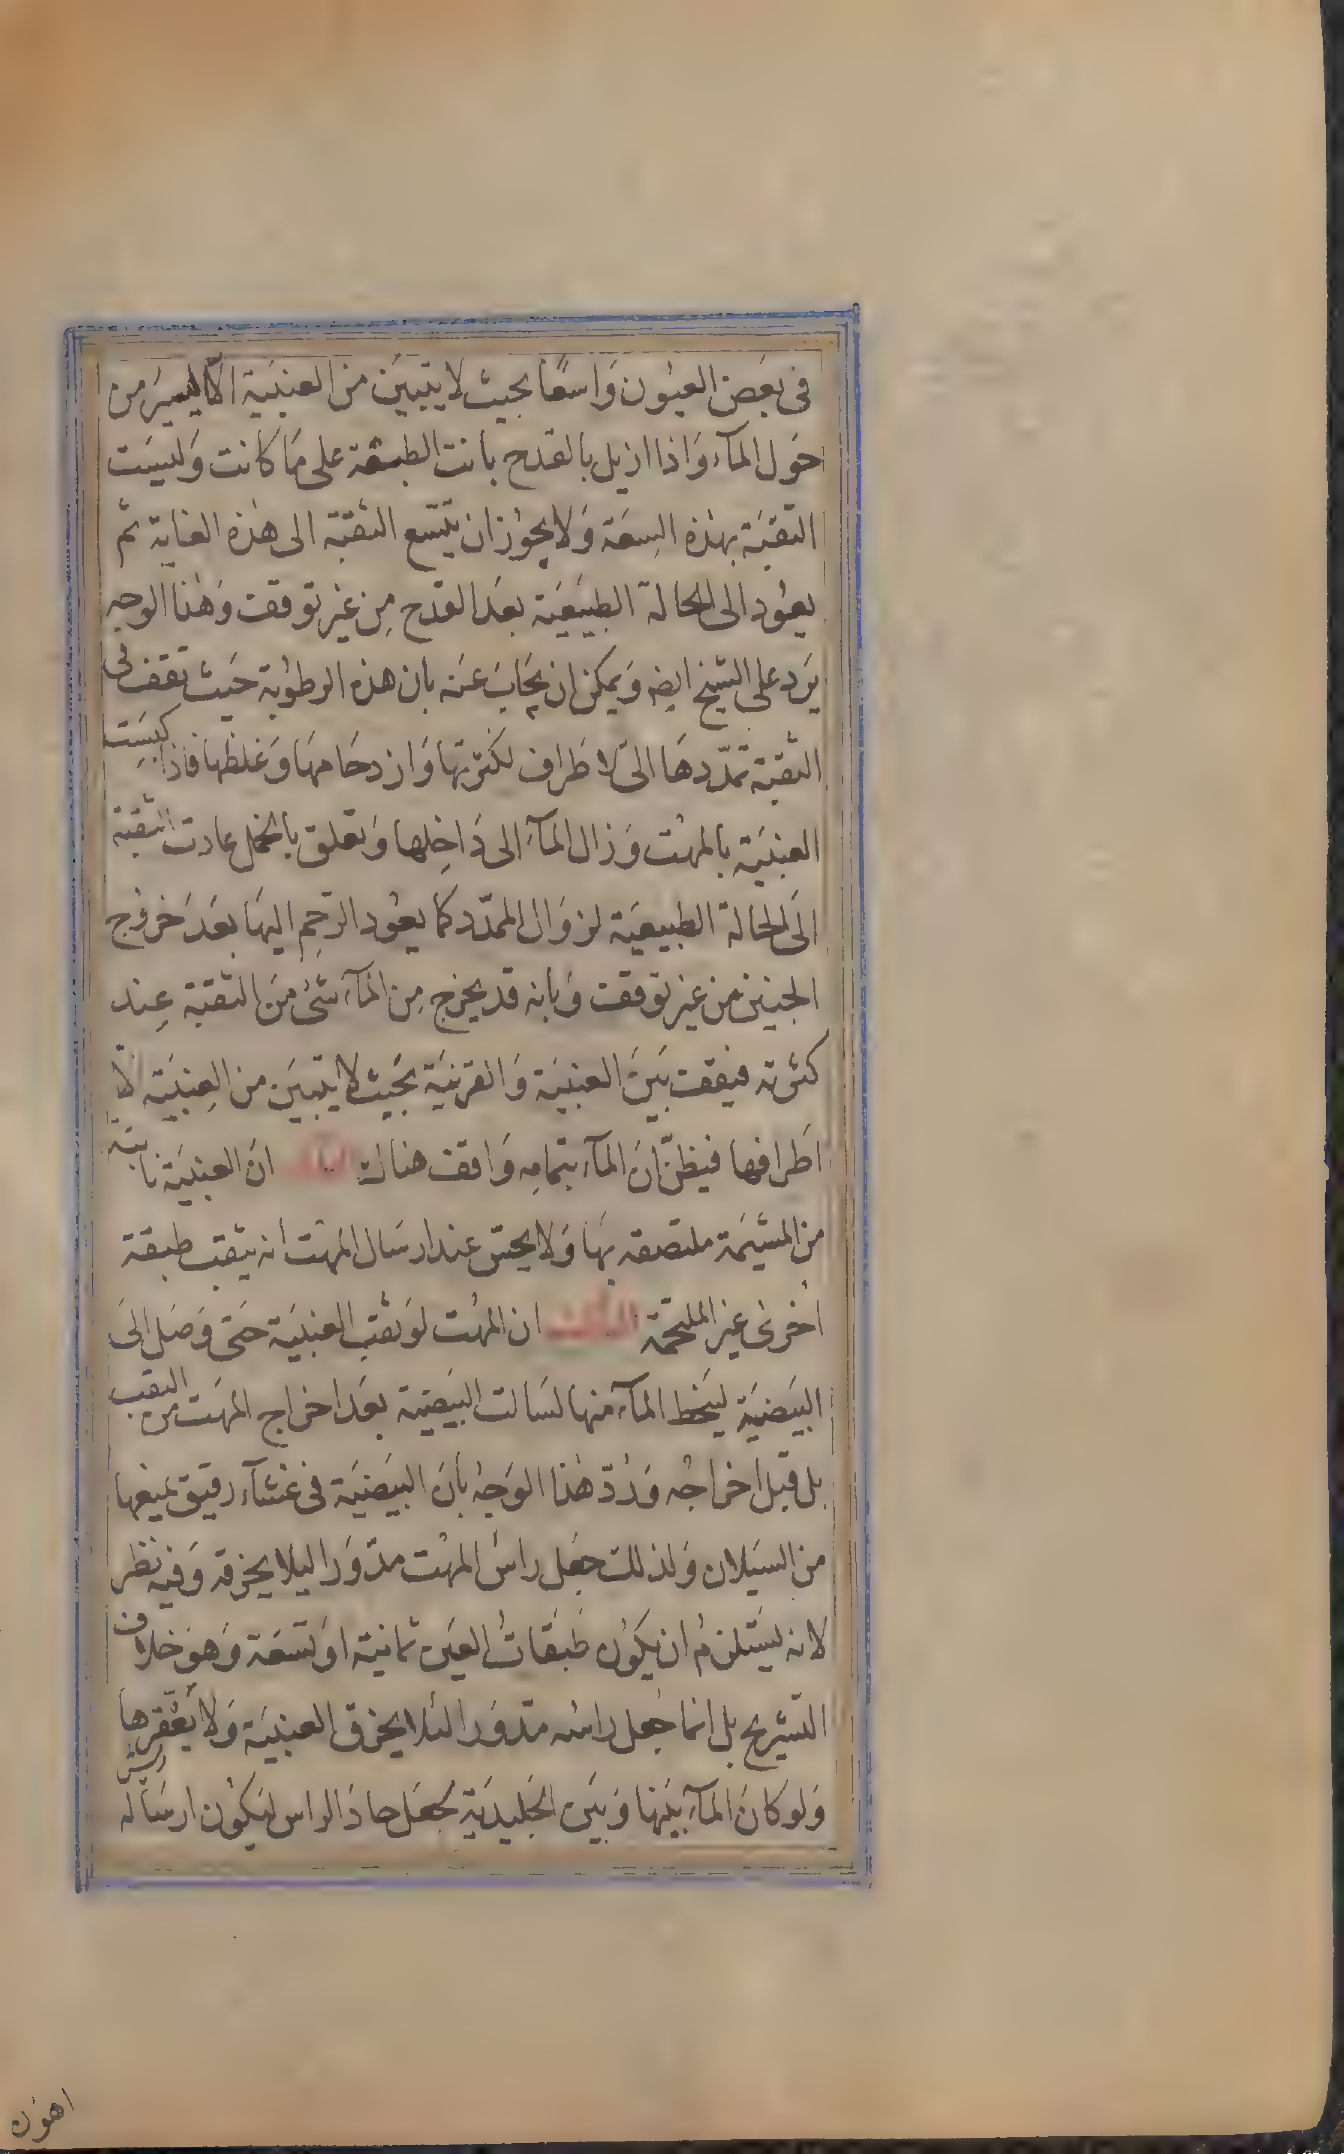 فى بعض العيون واسعًا بحيث لا يتبين من العنبية الّا اليسير من
حول المآء واذا ازيل بالقدح بانت الطبقة على ما كانت وليست
الثقبة بهذه السعة ولا يجوز ان يتسع الثقبة الى هذه الغاية ثم
يعود الى الحالة الطبيعية بعد القدح من غير توقف وهذا الوجه
يرد على الشيخ ايضه ويمكن ان يجاب عنه بان هذه الرطوبة حيث تقف فى
الثقبة تمدّدها الى الاطراف لكثرتها وازدحامها وغلظها فاذا كبست
العنبية بالمهت وزال المآء الى داخلها وتعلق بالخمل عادت الثقبة
الى الحالة الطبيعية لزوال الممدّد كما يعود الرحم اليها بعد خروج
الجنين من غير توقف وبانه قد يخرج من المآء شئ من الثقبة عند
كثرته فيقف بين العنبية والقرنية بحيث لا يتبين من العنبية الّا
اطرافها فيظنّ ان المآء بتمامه واقف هناك الثانى ان العنبية نابتة
من المشيمة ملتصقه بها ولا يحس عند ارسال المهت انه يثقب طبقة
اخرى غير الملتحمة الثالث ان المهت لو ثقب العنبية حتى وصل الى
البيضية ليحط المآء منها لسالت البيضية بعد اخراج المهت من الثقب
بل قبل اخراجه وردّ هذا الوجه بان البيضية فى غشآء رقيق يمنعها
من السيلان ولذلك جعل راس المهت مدّورا ليلا يخرقه وفيه نظر
لانه يستلزم ان يكون طبقات العين ثمانية او تسعة وهو خلاف
التشريح بل انما جعل راسه مدّورا لئلا يخرق العنبية ولا يعقرها
ولو كان المآء بينها وبين الجليدية لجعل حاد الراس ليكون ارساله
اهون